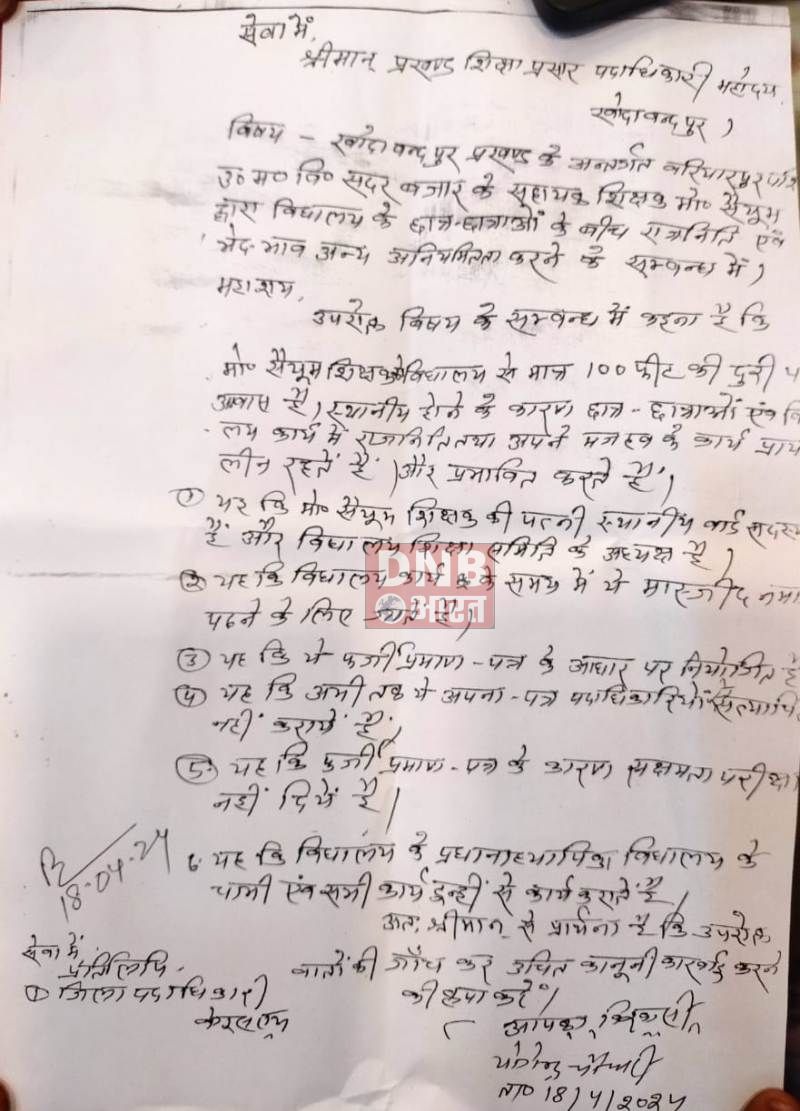 सेवा में,
श्रीमान् प्रखण्ड शिक्षा प्रसार पदाधिकारी महोदय
खोदावन्दपुर।
विषय – खोदावन्दपुर प्रखण्ड के अन्तर्गत बरियारपुर
उ० म० वि० सदर बजार के सहायक शिक्षक मो० सैयुम
द्वारा विद्यालय के छात्र-छात्राओं के बीच राजनिति एवं
भेद-भाव अन्य अनियमितता करने के सम्बन्ध में।
महाशय,
उपरोक्त विषय के सम्बन्ध में कहना है कि
मो० सैयूम शिक्षक विद्यालय से मात्र 100 फीट की दुरी
आवास है। स्थानीय होने के कारण छात्र-छात्राओं एंव
लय कार्य में राजनिति तथा अपने मजहव के कार्य
लीन रहतें हैं। और प्रभावित करते हैं।
① यह कि मो० सैयूम शिक्षक की पत्नी स्थानीय वार्ड सदस्य
हैं और विद्यालय शिक्षा समिति के अध्यक्ष है।
② यह कि विद्यालय कार्य के समय में ये मास्जीद
पढने के लिए जाते है।
DNB
भारत
③ यह कि ये फर्जी प्रमाण-पत्र के आधार पर नियोजित है
④ यह कि अभी तक ये अपना-पत्र पदाधिकारियों से
नहीं करायें हैं।
⑤ यह कि फर्जी प्रमाण-पत्र के कारण सक्षमता परीक्षा
नहीं दियें है।
6. यह कि विद्यालय के प्रधानाध्यापिका विद्यालय के
चाभी एंव सभी कार्य इन्हीं से कार्य करातें है।
18-04-24
अतः श्रीमान् से प्रार्थना है कि उपरोक्त
बातों की जाँच कर उचित कानूनी कारवाई करने
की कृपा करें।
सेवा में
प्रतिलिपि
① जिला पदाधिकारी
आपका
ता० 18/4/2024